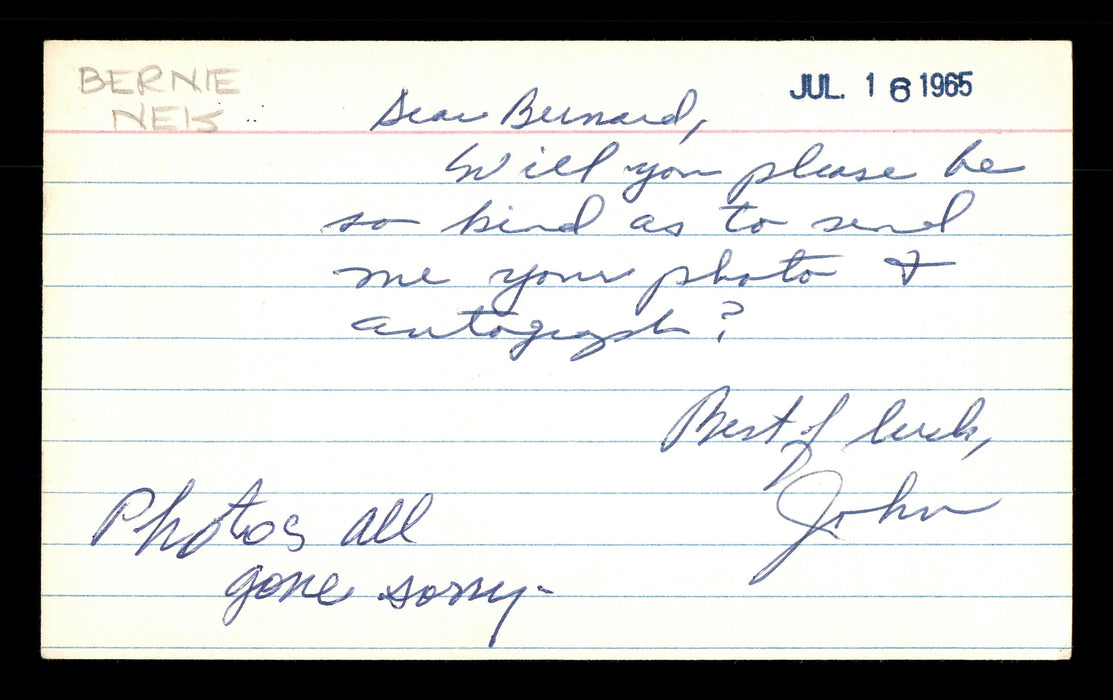 BERNIE
NEIS
JUL. 16 1965
Dear Bernard,
Will you please be
so kind as to send
me your photo &
autograph?
Best of luck,
John
Photos all
gone sorry-